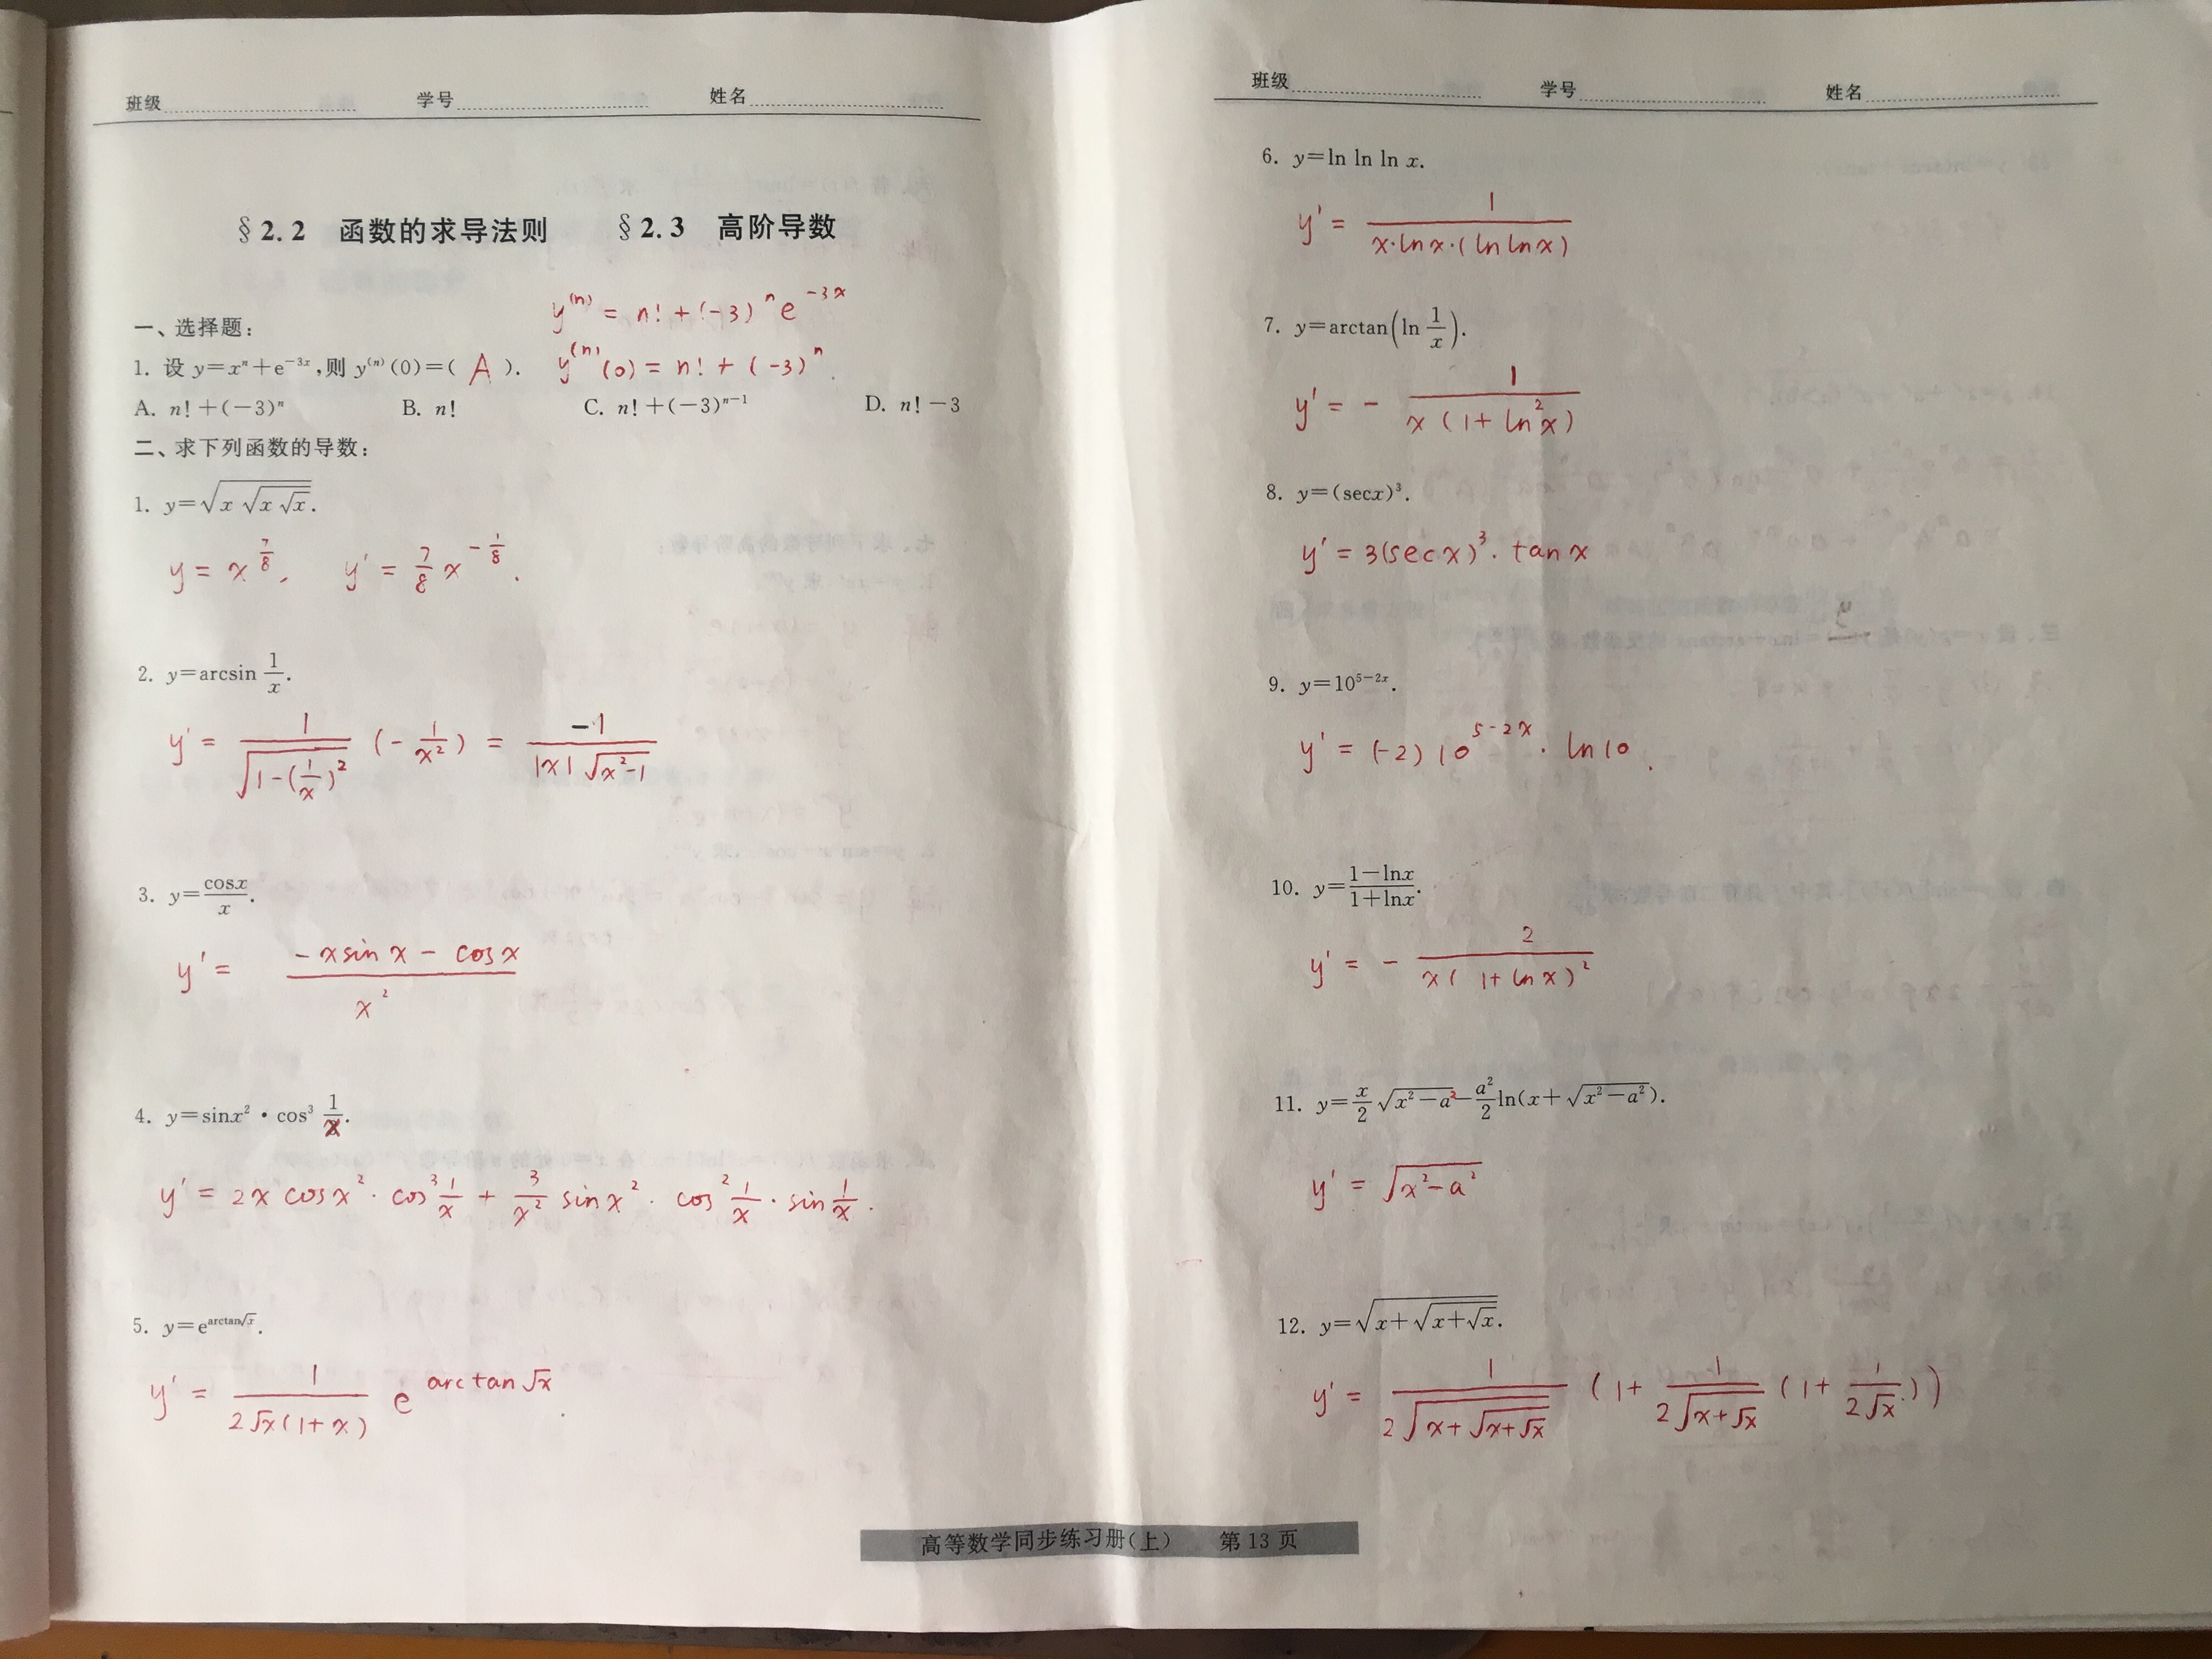 班级 学号 姓名
§2.2 函数的求导法则 §2.3 高阶导数
y⁽ⁿ⁾ = n! + (-3)ⁿ e⁻³ˣ
一、选择题:
1. 设 y=xⁿ+e⁻³ˣ,则 y⁽ⁿ⁾(0)=( A ). y⁽ⁿ⁾(0) = n! + (-3)ⁿ.
A. n!+(-3)ⁿ B. n! C. n!+(-3)ⁿ⁻¹ D. n!-3
二、求下列函数的导数:
1. y=√(x√(x√x)).
y = x^(7/8), y' = 7/8 x^(-1/8).
2. y=arcsin 1/x.
y' = 1/√(1-(1/x)²) (-1/x²) = -1/(|x|√(x²-1))
3. y=cosx/x.
y' = (-x sin x - cos x)/x²
4. y=sinx²·cos³ 1/x.
y' = 2x cos x² · cos³ 1/x + 3/x² sin x² · cos² 1/x · sin 1/x.
5. y=e^(arctan√x).
y' = 1/(2√x(1+x)) e^(arctan√x).
班级 学号 姓名
6. y=ln ln ln x.
y' = 1/(x·ln x·(ln ln x))
7. y=arctan(ln 1/x).
y' = - 1/(x(1+ln²x))
8. y=(secx)³.
y' = 3(sec x)³· tan x
9. y=10^(5-2x).
y' = (-2) 10^(5-2x) · ln 10.
10. y=(1-lnx)/(1+lnx).
y' = - 2/(x(1+ln x)²)
11. y=x/2 √(x²-a²)-a²/2 ln(x+√(x²-a²)).
y' = √(x²-a²)
12. y=√(x+√(x+√x)).
y' = 1/(2√(x+√(x+√x))) (1+ 1/(2√(x+√x)) (1+ 1/(2√x)))
高等数学同步练习册(上) 第13页